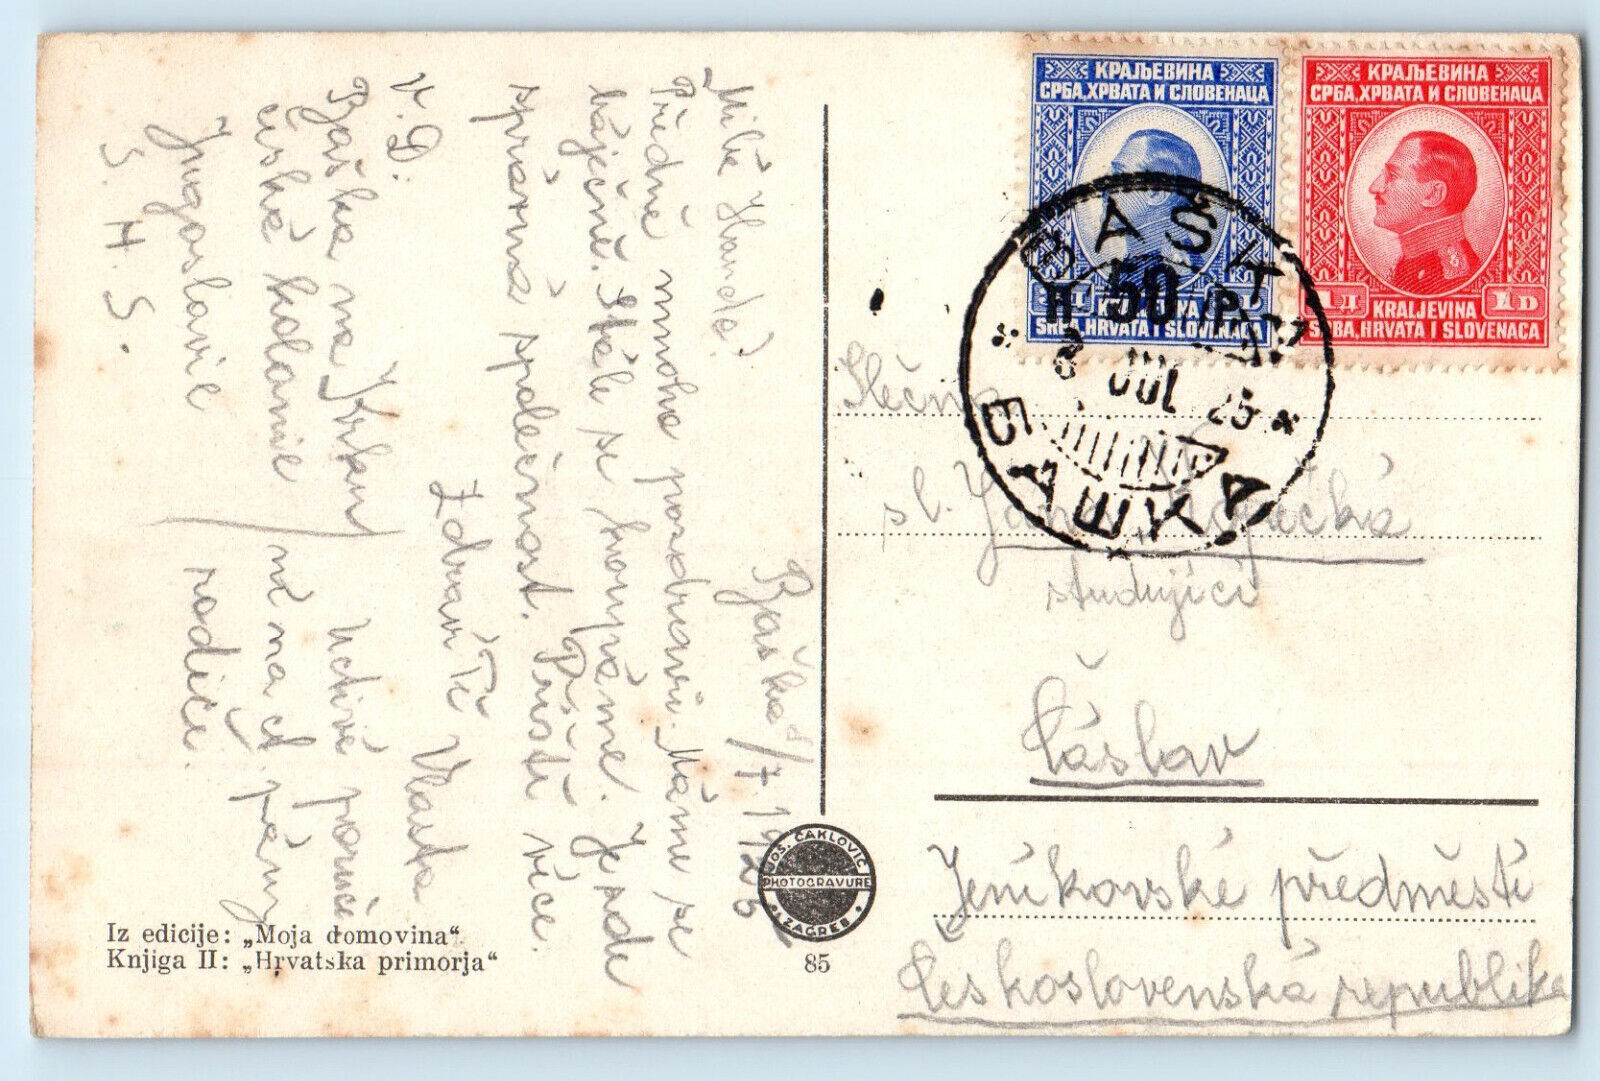 Bašká 8/7. 1925
Milá Hando!
Předně mnoho pozdravů. Máme se
báječně. Stále se koupáme. Je zde
správná společnost. Příště více.
Zdraví Tě Vlasta
V. D.
Baška na Krku
české kolonie
Jugoslavie
S. H. S.
Uctivé poručení
rodiče.
КРАЉЕВИНА
СРБА, ХРВАТА И СЛОВЕНАЦА
H 50 P
KRALJEVINA
SRBA, HRVATA I SLOVENACA
КРАЉЕВИНА
СРБА, ХРВАТА И СЛОВЕНАЦА
1 Д 1 D
KRALJEVINA
SRBA, HRVATA I SLOVENACA
BAŠKA
8 JUL 25
БАШКА
Slečna
sl. Jana
studující
Čáslav
Jeníkovské předměstí
Československá republika
JOS. ČAKLOVIĆ
PHOTOGRAVURE
ZAGREB
Iz edicije: „Moja domovina“
Knjiga II: „Hrvatska primorja“
85